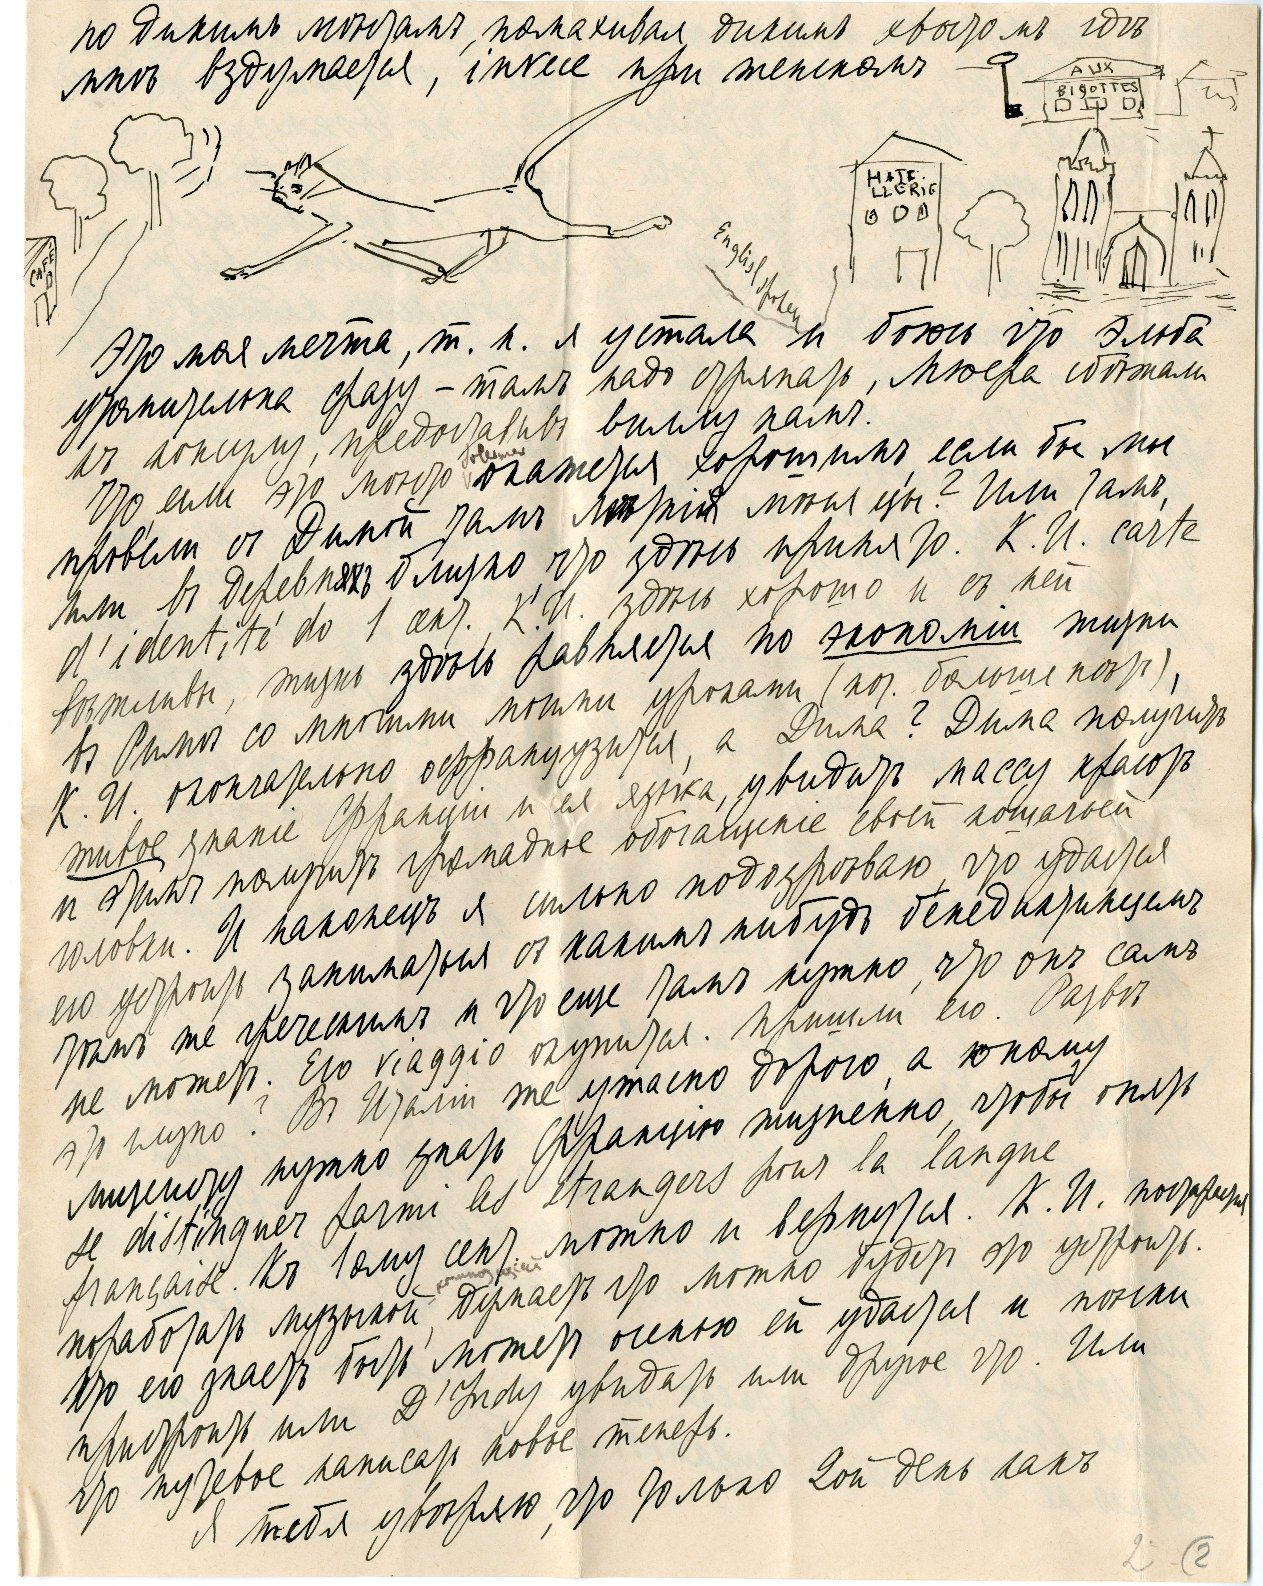 по дикимъ мѣстамъ, помахивая дикимъ хвостомъ гдѣ
мнѣ вздумается, invece при женскомъ
AUX
BIGOTTES
HÔTE-
LLERIE
CAFÉ
English spoken
Это моя мечта, т. к. я устала и боюсь что Эльба
утомительна сразу – тамъ надо стряпать, сбѣжали
къ консулу, предоставивъ виллу намъ.
Что если это мѣсто окажется хорошимъ, если бы мы
провели съ Димой тамъ мѣсяцы? Или тамъ,
или въ деревняхъ близко, что здѣсь принято. К. И. carte
d'identité do 1 окт. К. И. здѣсь хорошо и съ ней
вѣжливы, жизнь здѣсь равняется по экономіи жизни
въ Римѣ со многими моими уроками (кот. больше нѣтъ),
К. И. окончательно офранцузится, а Дима? Дима получитъ
живое знаніе Франціи и ея языка, увидитъ массу красотъ
и этимъ получитъ громадное обогащеніе своей кошачьей
головки. И наконецъ я сильно подозрѣваю, что удастся
его устроить заниматься съ какимъ нибудь бенедиктинцемъ
тѣмъ же греческимъ и что еще тамъ нужно, что онъ самъ
не можетъ. Его viaggio окупится. Пришли его. Развѣ
это глупо? Въ Италіи же ужасно дорого, а юному
лицеисту нужно знать Францію жизненно, чтобы опять
se distinguer parmi les étrangers pour la langue
française. Къ 1ому сент. можно и вернуться. К. И. постарается
поработать музыкой, думаетъ что можно будетъ это устроить.
Кто его знаетъ быть можетъ осенью ей удастся и пѣсни
пристроить или D'Indy увидать или другое что. Или
что путевое написать новое теперь.
Я тебя увѣряю, что только 2ой день какъ
2 (2